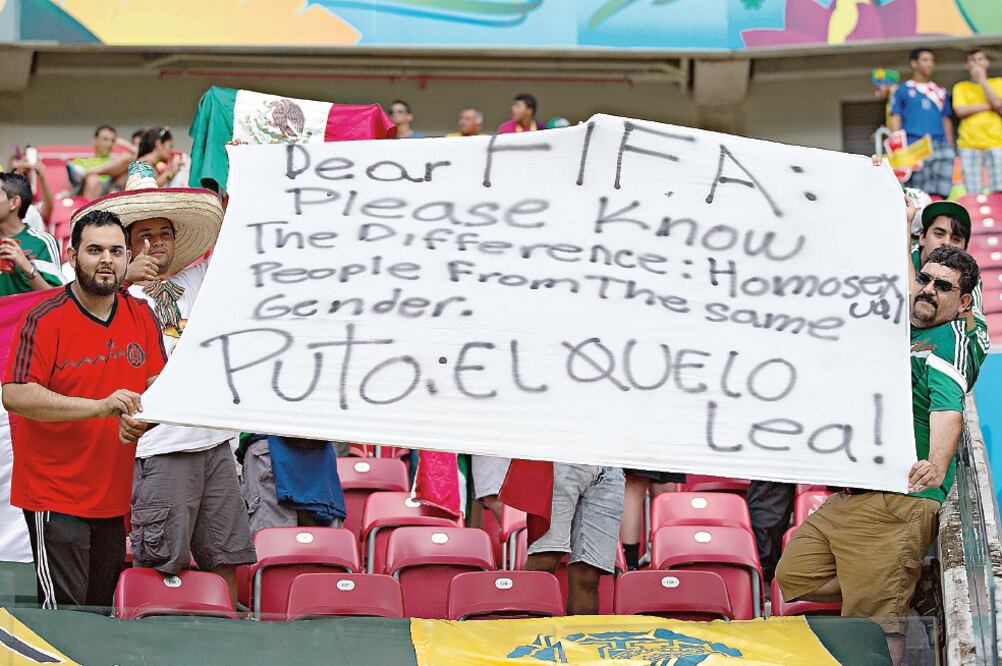 Dear FIFA:
Please Know
The Difference: Homosexual
People From The same
Gender.
PUTO: EL QUE LO
Lea!